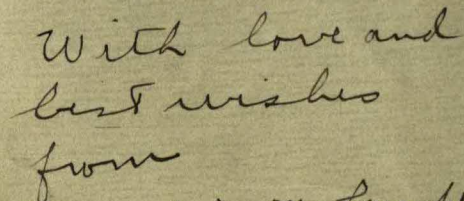 With love and
best wishes
from